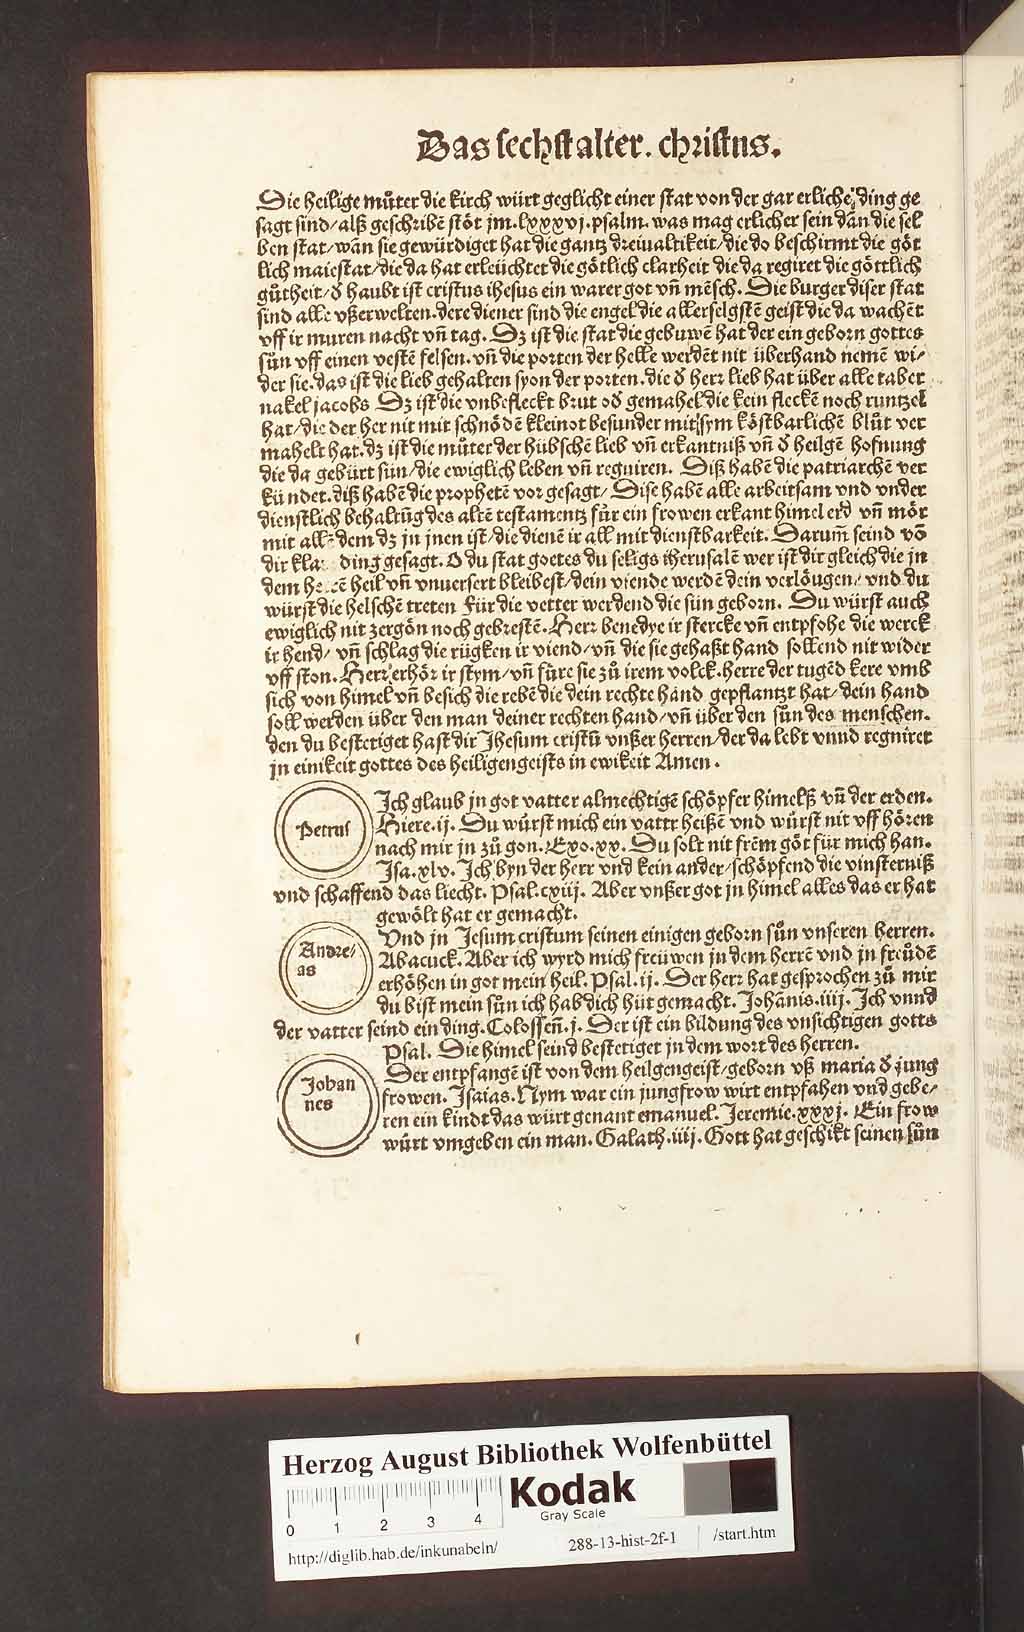 Das sechst alter. christus.
Die heilige můter die kirch würt geglicht einer stat von der gar erlicheͤ ding ge
sagt sind/alß geschribē stöt jm.lxxxvj.psalm. was mag erlicher sein dān die sel
ben stat/wān sie gewürdiget hat die gantz dreiualtikeit/die do beschirmt die göt
lich maiestat/die da hat erleüchtet die götlich clarheit die da regiret die göttlich
gůtheit/d̕ haubt ist cristus ihesus ein warer got vn̄ mēsch. Die burger diser stat
sind alle vßerwelten.dere diener sind die engel die allerselgstē geist die da wachēt
vff ir muren nacht vn̄ tag. Dz ist die stat die gebuwē hat der ein geborn gottes
sůn vff einen vestē felsen.vn̄ die porten der helle werdēt nit überhand nemē wi/
der sie.das ist die lieb gehalten syon der porten.die d̕ herr lieb hat über alle taber
nakel jacobs Dz ist die vnbefleckt brut od̕ gemahel die kein fleckē noch runtzel
hat/die der her nit mit schnödē kleinot besunder mit sym köstbarlichē blůt ver
mahelt hat.dz ist die můter der hübschē lieb vn̄ erkantniß vn̄ d̕ heilgē hofnung
die da gebürt sün/die ewiglich leben vn̄ regniren. Diß habē die patriarchē ver
kündet.diß habē die prophetē vor gesagt/Dise habē alle arbeitsam vnd vnder
dienstlich behaltūg des altē testamentz für ein frowen erkant himel erd vn̄ mör
mit all dem dz jn jnen ist/die dienē ir all mit dienstbarkeit. Darum̄ seind vō
dir ding gesagt.O du stat gottes du seligs iherusalē wer ist dir gleich die jn
dem heil vn̄ vnuersert bleibest/dein viende werdē dein verlöugen/vnd du
würst die helschē treten für die vetter werdend die sün geborn. Du würst auch
ewiglich nit zergön noch gebrestē.Herr benedye ir stercke vn̄ entpfohe die werck
ir hend/ vn̄ schlag die rügken ir viend/vn̄ die sie gehaßt hand sollend nit wider
vff ston.Herr erhör ir stym/vn̄ füre sie zů irem volck.herre der tugēd kere vmb
sich von himel vn̄ besich die rebē die dein rechte hand gepflantzt hat/dein hand
soll werden über den man deiner rechten hand/vn̄ über den sůn des menschen.
den du bestetiget hast dir Jhesum cristū vnßer herren/der da lebt vnnd regniret
jn einikeit gottes des heiligen geists in ewikeit Amen.
Petrus
Jch glaub jn got vatter almechtigē schöpfer himelß vn̄ der erden.
Hiere.ij. Du würst mich ein vattr heißē vnd würst nit vff hören
nach mir jn zů gon.Exo.xx. Du solt nit frēm göt für mich han.
Jsa.xlv. Jch byn der herr vnd kein ander/schöpfend die vinsterniß
vnd schaffend das liecht. Psal.cxiij. Aber vnßer got jn himel alles das er hat
gewölt hat er gemacht.
Andre/
as
Vnd jn Jesum cristum seinen einigen geborn sůn vnseren herren.
Abacuck.Aber ich wyrd mich freüwen jn dem herrē vnd jn freůdē
erhöhen in got mein heil.Psal.ij. Der herr hat gesprochen zů mir
du bist mein sůn ich hab dich hüt gemacht.Johānis.iiij. Jch vnnd
der vatter seind ein ding.Colossen̄.j. Der ist ein bildung des vnsichtigen gotts
Psal. Die himel seind bestetiget jn dem wort des herren.
Johan
nes
Der entpfangē ist von dem heilgen geist/geborn vß maria d̕ jung
frowen.Jsaias.Nym war ein jungfrow wirt entpfahen vnd gebe/
ren ein kindt das würt genant emanuel.Jeremie.xxxj. Ein frow
würt vmgeben ein man.Galath.iiij.Gott hat geschikt seinen sůn
Herzog August Bibliothek Wolfenbüttel
0 1 2 3 4
Kodak
Gray Scale
http://diglib.hab.de/inkunabeln/
288-13-hist-2f-1
/start.htm